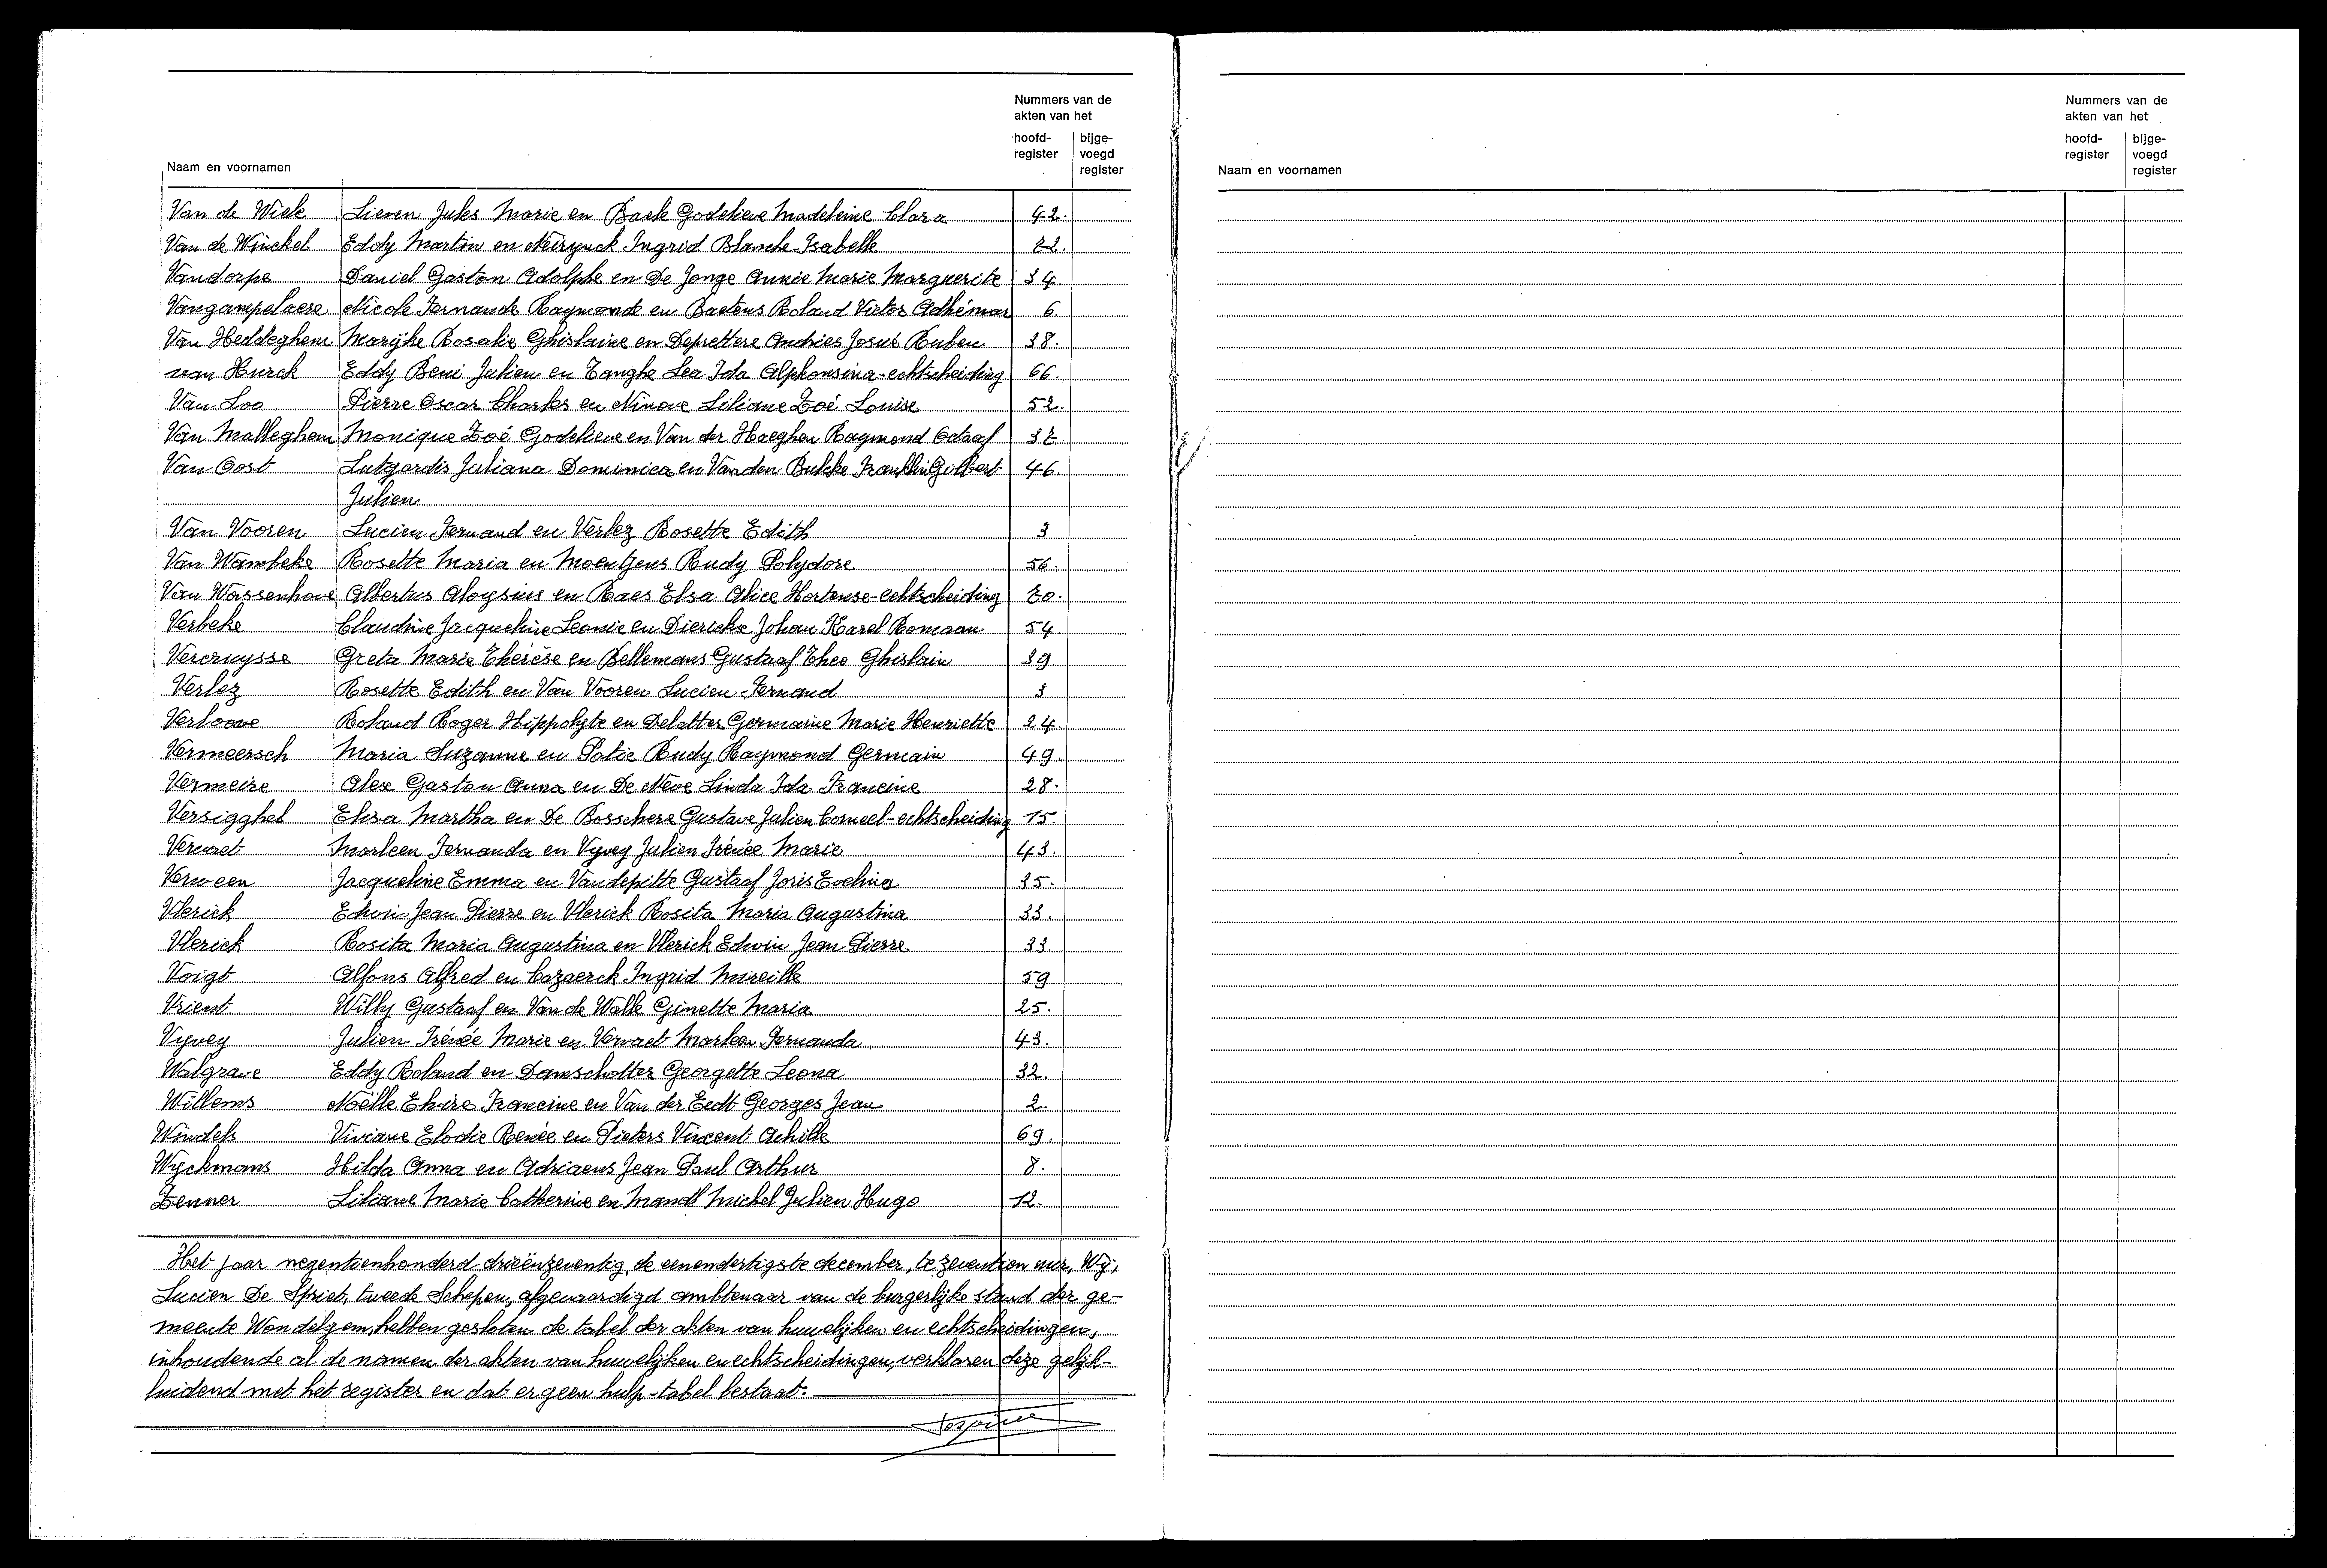 Nummers van de
akten van het
hoofd-
register
bijge-
voegd
register
Naam en voornamen
Van de Wiele Lieven Jules Marie en Baele Godelieve Madeleine Clara 42.
Van de Winckel Eddy Martin en Neirynck Ingrid Blanche Isabelle 72.
Vandorpe Daniel Gaston Adolphe en De Jonge Annie Marie Marguerite 34
Vangampelaere Nicole Fernande Raymonde en Baetens Roland Victor Adhémar 6.
Van Heddeghem Marijke Rosalie Ghislaine en Deprettere Andries Josué Ruben 38.
van Hurck Eddy Beni Julien en Tanghe Lea Ida Alphonsina-echtscheiding 66.
Van Loo Pierre Oscar Charles en Ninove Liliane Zoé Louise 52.
Van Malleghem Monique Zoé Godelieve en Van der Haeghen Raymond Octaaf 37.
Van Oost Lutgardis Juliana Dominica en Vanden Bulcke Franklin Gilbert 46.
Julien
Van Vooren Lucien Fernand en Verlez Rosette Edith 3
Van Wambeke Rosette Maria en Moentjens Rudy Polydore 56.
Van Wassenhove Albertus Aloysius en Raes Elsa Alice Hortense-echtscheiding 70.
Verbeke Claudine Jacqueline Leonie en Dierickx Johan Karel Romaan 54.
Vercruysse Greta Marie Thérèse en Bellemans Gustaaf Theo Ghislain 39.
Verlez Rosette Edith en Van Vooren Lucien Fernand 3
Verloove Roland Roger Hippolyte en Delatter Germaine Marie Henriette 24.
Vermeersch Maria Suzanne en Potie Rudy Raymond Germain 49.
Vermeire Alex Gaston Anna en De Neve Linda Ida Francine 28.
Versigghel Elisa Martha en De Bosschere Gustave Julien Corneel-echtscheiding 15.
Vervaet Marleen Fernanda en Vyvey Julien Irénée Marie 43.
Verween Jacqueline Emma en Vandepitte Gustaaf Joris Evelina 35.
Vlerick Edwin Jean Pierre en Vlerick Rosita Maria Augustina 33.
Vlerick Rosita Maria Augustina en Vlerick Edwin Jean Pierre 33.
Voigt Alfons Alfred en Cazaerck Ingrid Mireille 59
Vrient Willy Gustaaf en Van de Walle Ginette Maria 25.
Vyvey Julien Irénée Marie en Vervaet Marleen Fernanda 43.
Walgrave Eddy Roland en Damschotter Georgette Leona 32.
Willems Noëlle Elvire Francine en Van der Eedt Georges Jean 2.
Windels Viviane Elodie Renée en Pieters Vincent Achille 69.
Wyckmans Hilda Anna en Adriaens Jean Paul Arthur 8.
Zenner Liliane Marie Catherine en Mandl Michel Julien Hugo 12.
Het jaar negentienhonderd drieënzeventig, de eenendertigste december, te zeventien uur, Wij,
Lucien De Spriet, tweede Schepen, afgevaardigd ambtenaar van de burgerlijke stand der ge-
meente Wondelgem, hebben gesloten de tabel der akten van huwelijken en echtscheidingen,
inhoudende al de namen der akten van huwelijken en echtscheidingen, verklaren deze gelijk-
luidend met het register en dat er geen hulp-tabel bestaat.
Nummers van de
akten van het
hoofd-
register
bijge-
voegd
register
Naam en voornamen